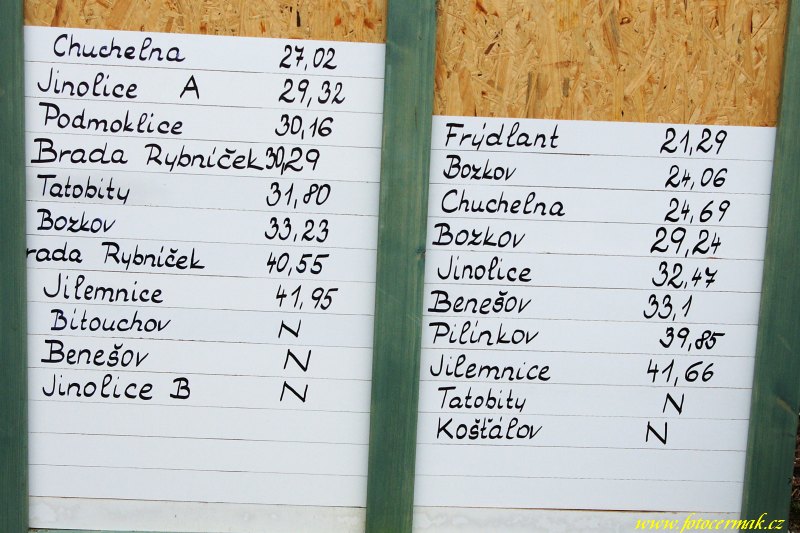 Chuchelna 27,02
Jinolice A 29,32
Podmoklice 30,16
Brada Rybníček 30,29
Tatobity 31,80
Bozkov 33,23
rada Rybníček 40,55
Jilemnice 41,95
Bítouchov N
Benešov N
Jinolice B N
Frýdlant 21,29
Bozkov 24,06
Chuchelna 24,69
Bozkov 29,24
Jinolice 32,47
Benešov 33,1
Pilínkov 39,85
Jilemnice 41,66
Tatobity N
Košťálov N
www.fotocermak.cz